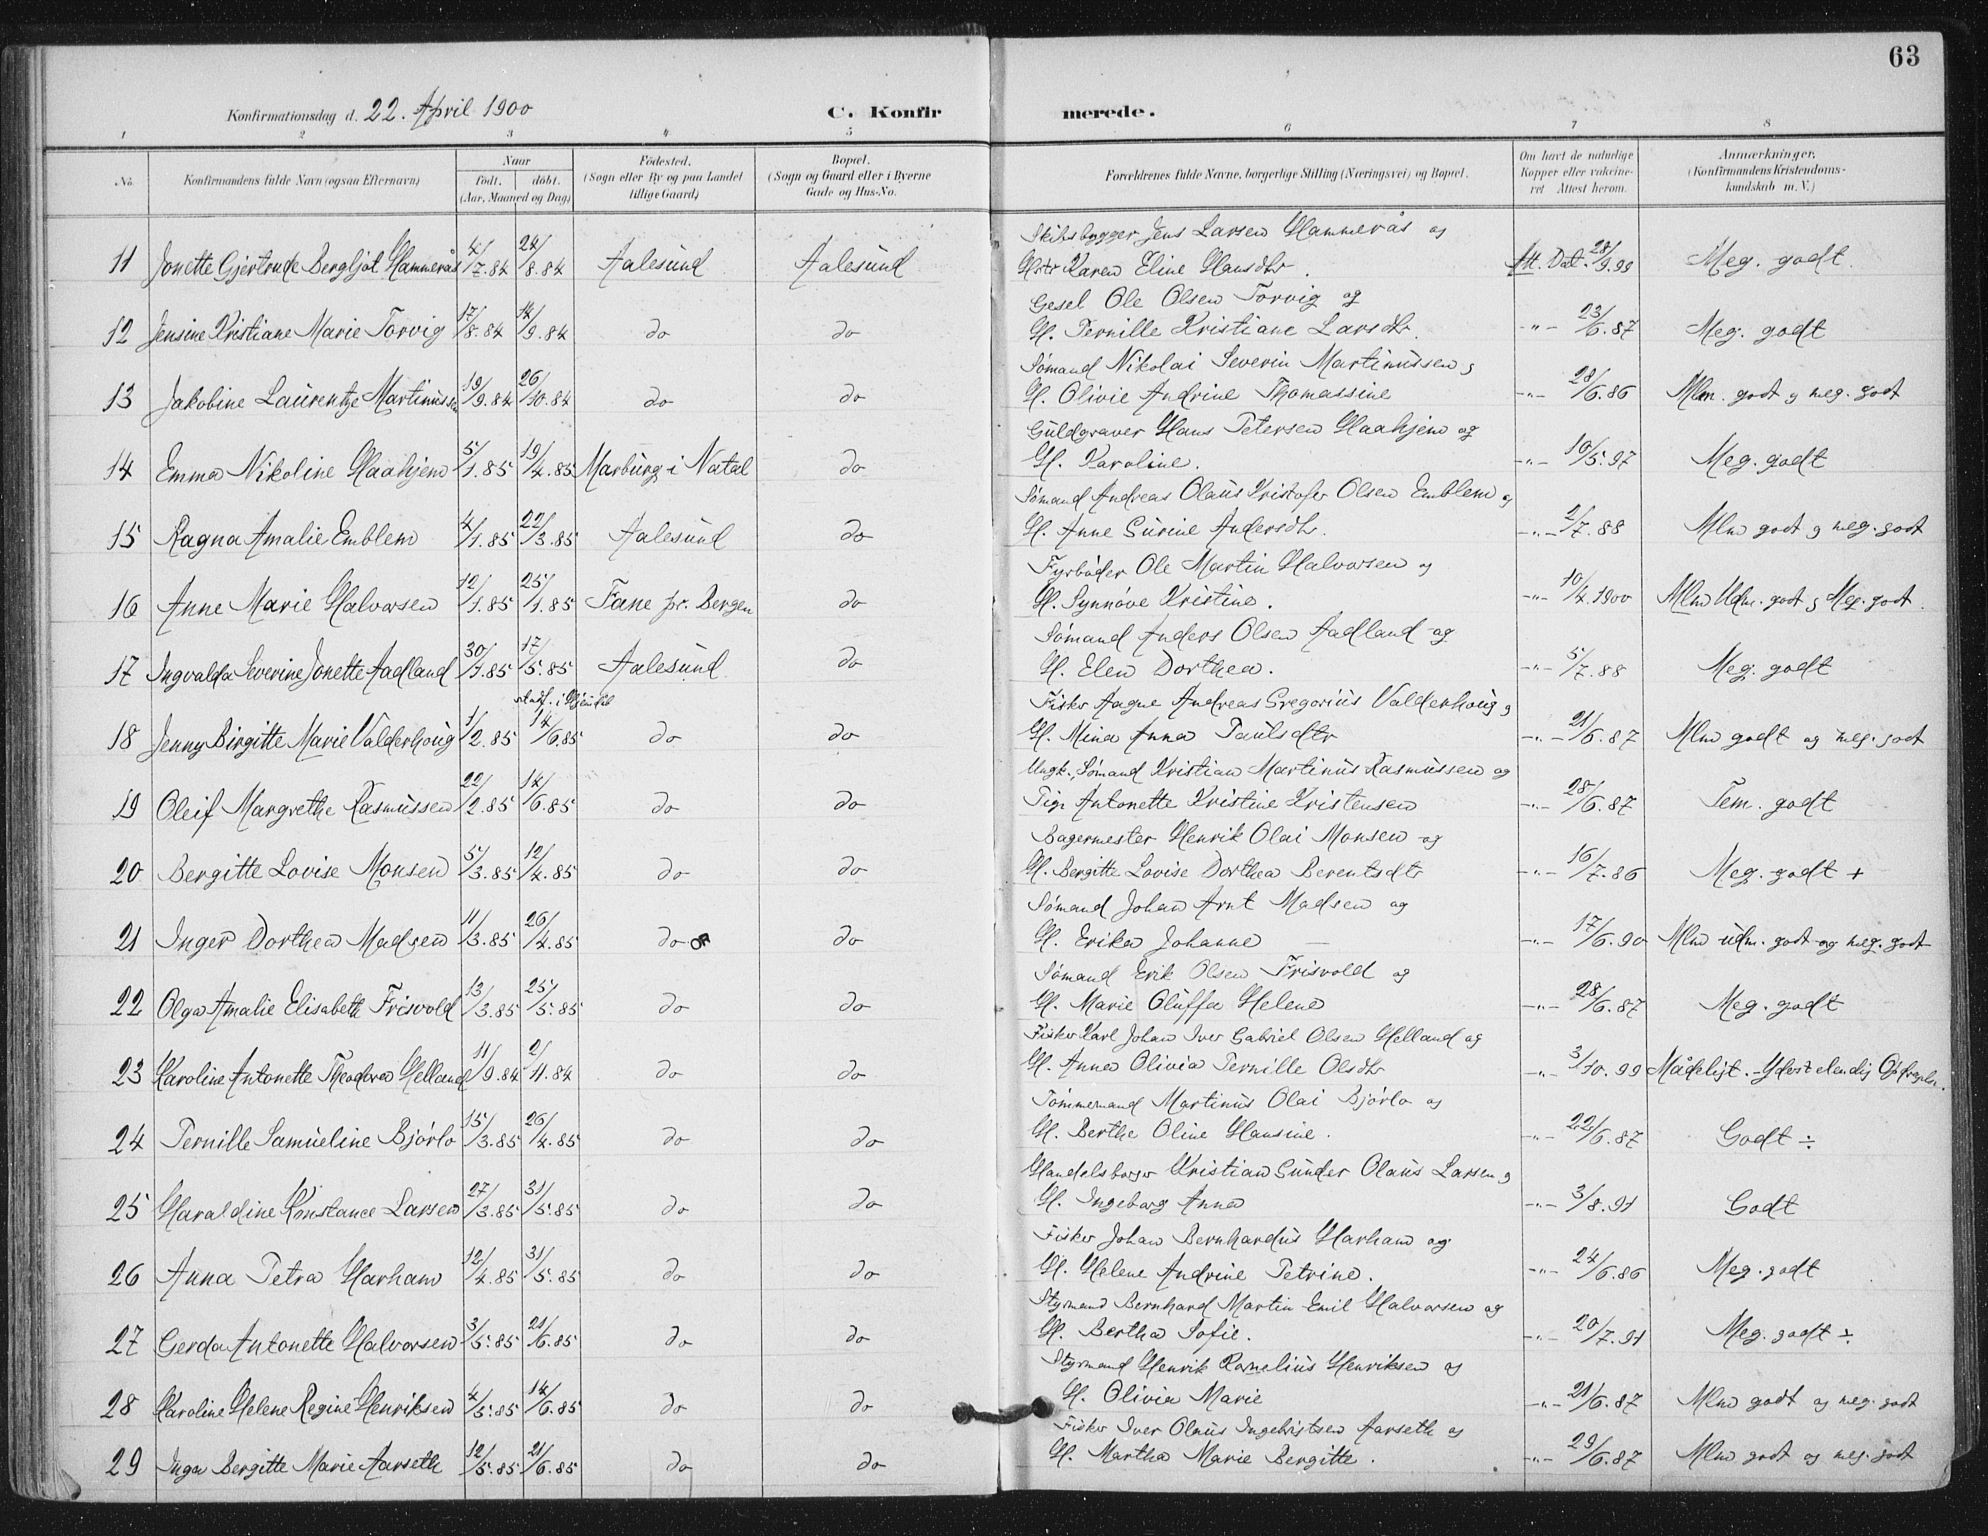 63
Konfirmationsdag d. 22. April 1900
C. Konfirmerede.
1 2 3 4 5 6 7 8
No. Konfirmandens fulde Navn (ogsaa Efternavn) Naar født. døbt. (Aar, Maaned og Dag) Födested. (Sogn eller By og paa Landet tillige Gaard) Bopæl. (Sogn og Gaard eller i Byerne Gade og Hus-No. Forældrenes fulde Navne, borgerlige Stilling (Næringsvei) og Bopæl. Om havt de naturlige Kopper eller vakcineret Attest herom. Anmærkninger. (Konfirmandens Kristendomskundskab m. V.)
Skibsbygger Jens Larsen Hammerås og
11 Jonette Gjertrude Bergljot Hammerås 4/7.84 24/8.84 Aalesund Aalesund Hstr Karen Eline Hansdtr. Att. Dat. 28/9.99 Meg. godt.
Gesel Ole Olsen Torvig og
12 Jensine Kristiane Marie Torvig 17/8.84 14/9.84 do do H. Pernille Kristiane Larsdtr. -"- 23/6.87 Meg. godt
Sömand Nikolai Severin Martinussen og
13 Jakobine Laurentze Martinussen 19/9.84 26/10.84 do do H. Olivie Andrine Thomassine -"- 28/6.86 Mlm. godt og meg. godt
Guldgraver Hans Petersen Haahjem og
14 Emma Nikoline Haahjem 5/1.85 19/4.85 Marburg i Natal do H. Karoline. -"- 10/5.97 Meg. godt
Sömand Andreas Olaus Kristofer Olsen Emblem og
15 Ragna Amalie Emblem 4/1.85 22/3.85 Aalesund do H. Anne Surine Andersdtr. -"- 2/7.88 Mlm godt og meg. godt
Fyrböder Ole Martin Halvorsen og
16 Anne Marie Halvorsen 12/1.85 25/1.85 Fane pr. Bergen do H. Synnöve Kristine. -"- 10/4.1900 Mlm Udm. godt og Meg. godt.
Sömand Anders Olsen Aadland og
17 Ingvalda Severine Jonette Aadland 30/1.85 17/5.85 Aalesund do H. Elen Dorthea. -"- 5/7.88 Meg. godt
Fisker Aagne Andreas Gregorius Valderhoug og
18 Jenny Birgitte Marie Valderhoug 1/2.85 14/6.85 do do H. Mina Anna Paulsdtr -"- 21/6.87 Mlm godt og meg. godt
Ungk., Sömand Kristian Martinus Rasmussen og
19 Oleif Margrethe Rasmussen 22/2.85 14/6.85 do do Pige Antonette Kristine Kristensen -"- 28/6.87 Tem. godt
Bagermester Henrik Olai Monsen og
20 Bergitte Lovise Monsen 5/3.85 12/4.85 do do H. Bergitte Lovise Dorthea Berentsdtr -"- 16/7.86 Meg. godt +
Sömand Johan Arnt Madsen og
21 Inger Dorthea Madsen 11/3.85 26/4.85 do do H. Erika Johanne -"- 17/6.90 Mlm udm. godt og meg. godt
Sömand Erik Olsen Frisvold og
22 Olga Amalie Elisabeth Frisvold 13/3.85 25/5.85 do do H. Marie Oluffa Helene -"- 28/6.87 Meg. godt
Fisker Karl Johan Iver Gabriel Olsen Helland og
23 Karoline Antonette Theodora Helland 11/9.84 2/11.84 do do H. Anna Olivia Pernille Olsdtr -"- 3/10.99 Mådeligt. - Yderst elendig
Tömmermand Martinus Olai Björlo og
24 Pernille Samueline Björlo 15/3.85 26/4.85 do do H. Berthe Oline Hansine. -"- 22/6.87 Godt ÷
Handelsborger Kristian Gunder Olaus Larsen og
25 Haraldine Konstance Larsen 27/3.85 31/5.85 do do H. Ingeborg Anna -"- 3/8.91 Godt
Fisker Johan Bernhardus Harham og
26 Anna Petra Harham 12/4.85 31/5.85 do do H. Helene Andrine Petrine. -"- 24/6.86 Meg. godt
Styrmand Bernhard Martin Emil Halvorsen og
27 Gerda Antonette Halvorsen 3/5.85 21/6.85 do do H. Bertha Sofie. -"- 20/7.91 Meg. godt ÷
Styrmand Henrik Kornelius Henriksen og
28 Karoline Helene Regine Henriksen 4/5.85 14/6.85 do do H. Olivia Marie -"- 21/6.87 Mlm godt og meg. godt
Fisker Iver Olaus Ingebrigtsen Aarseth og
29 Inga Bergitte Marie Aarseth 12/5.85 21/6.85 do do H. Martha Marie Bergitte. -"- 29/6.87 Mlm godt og meg. godt